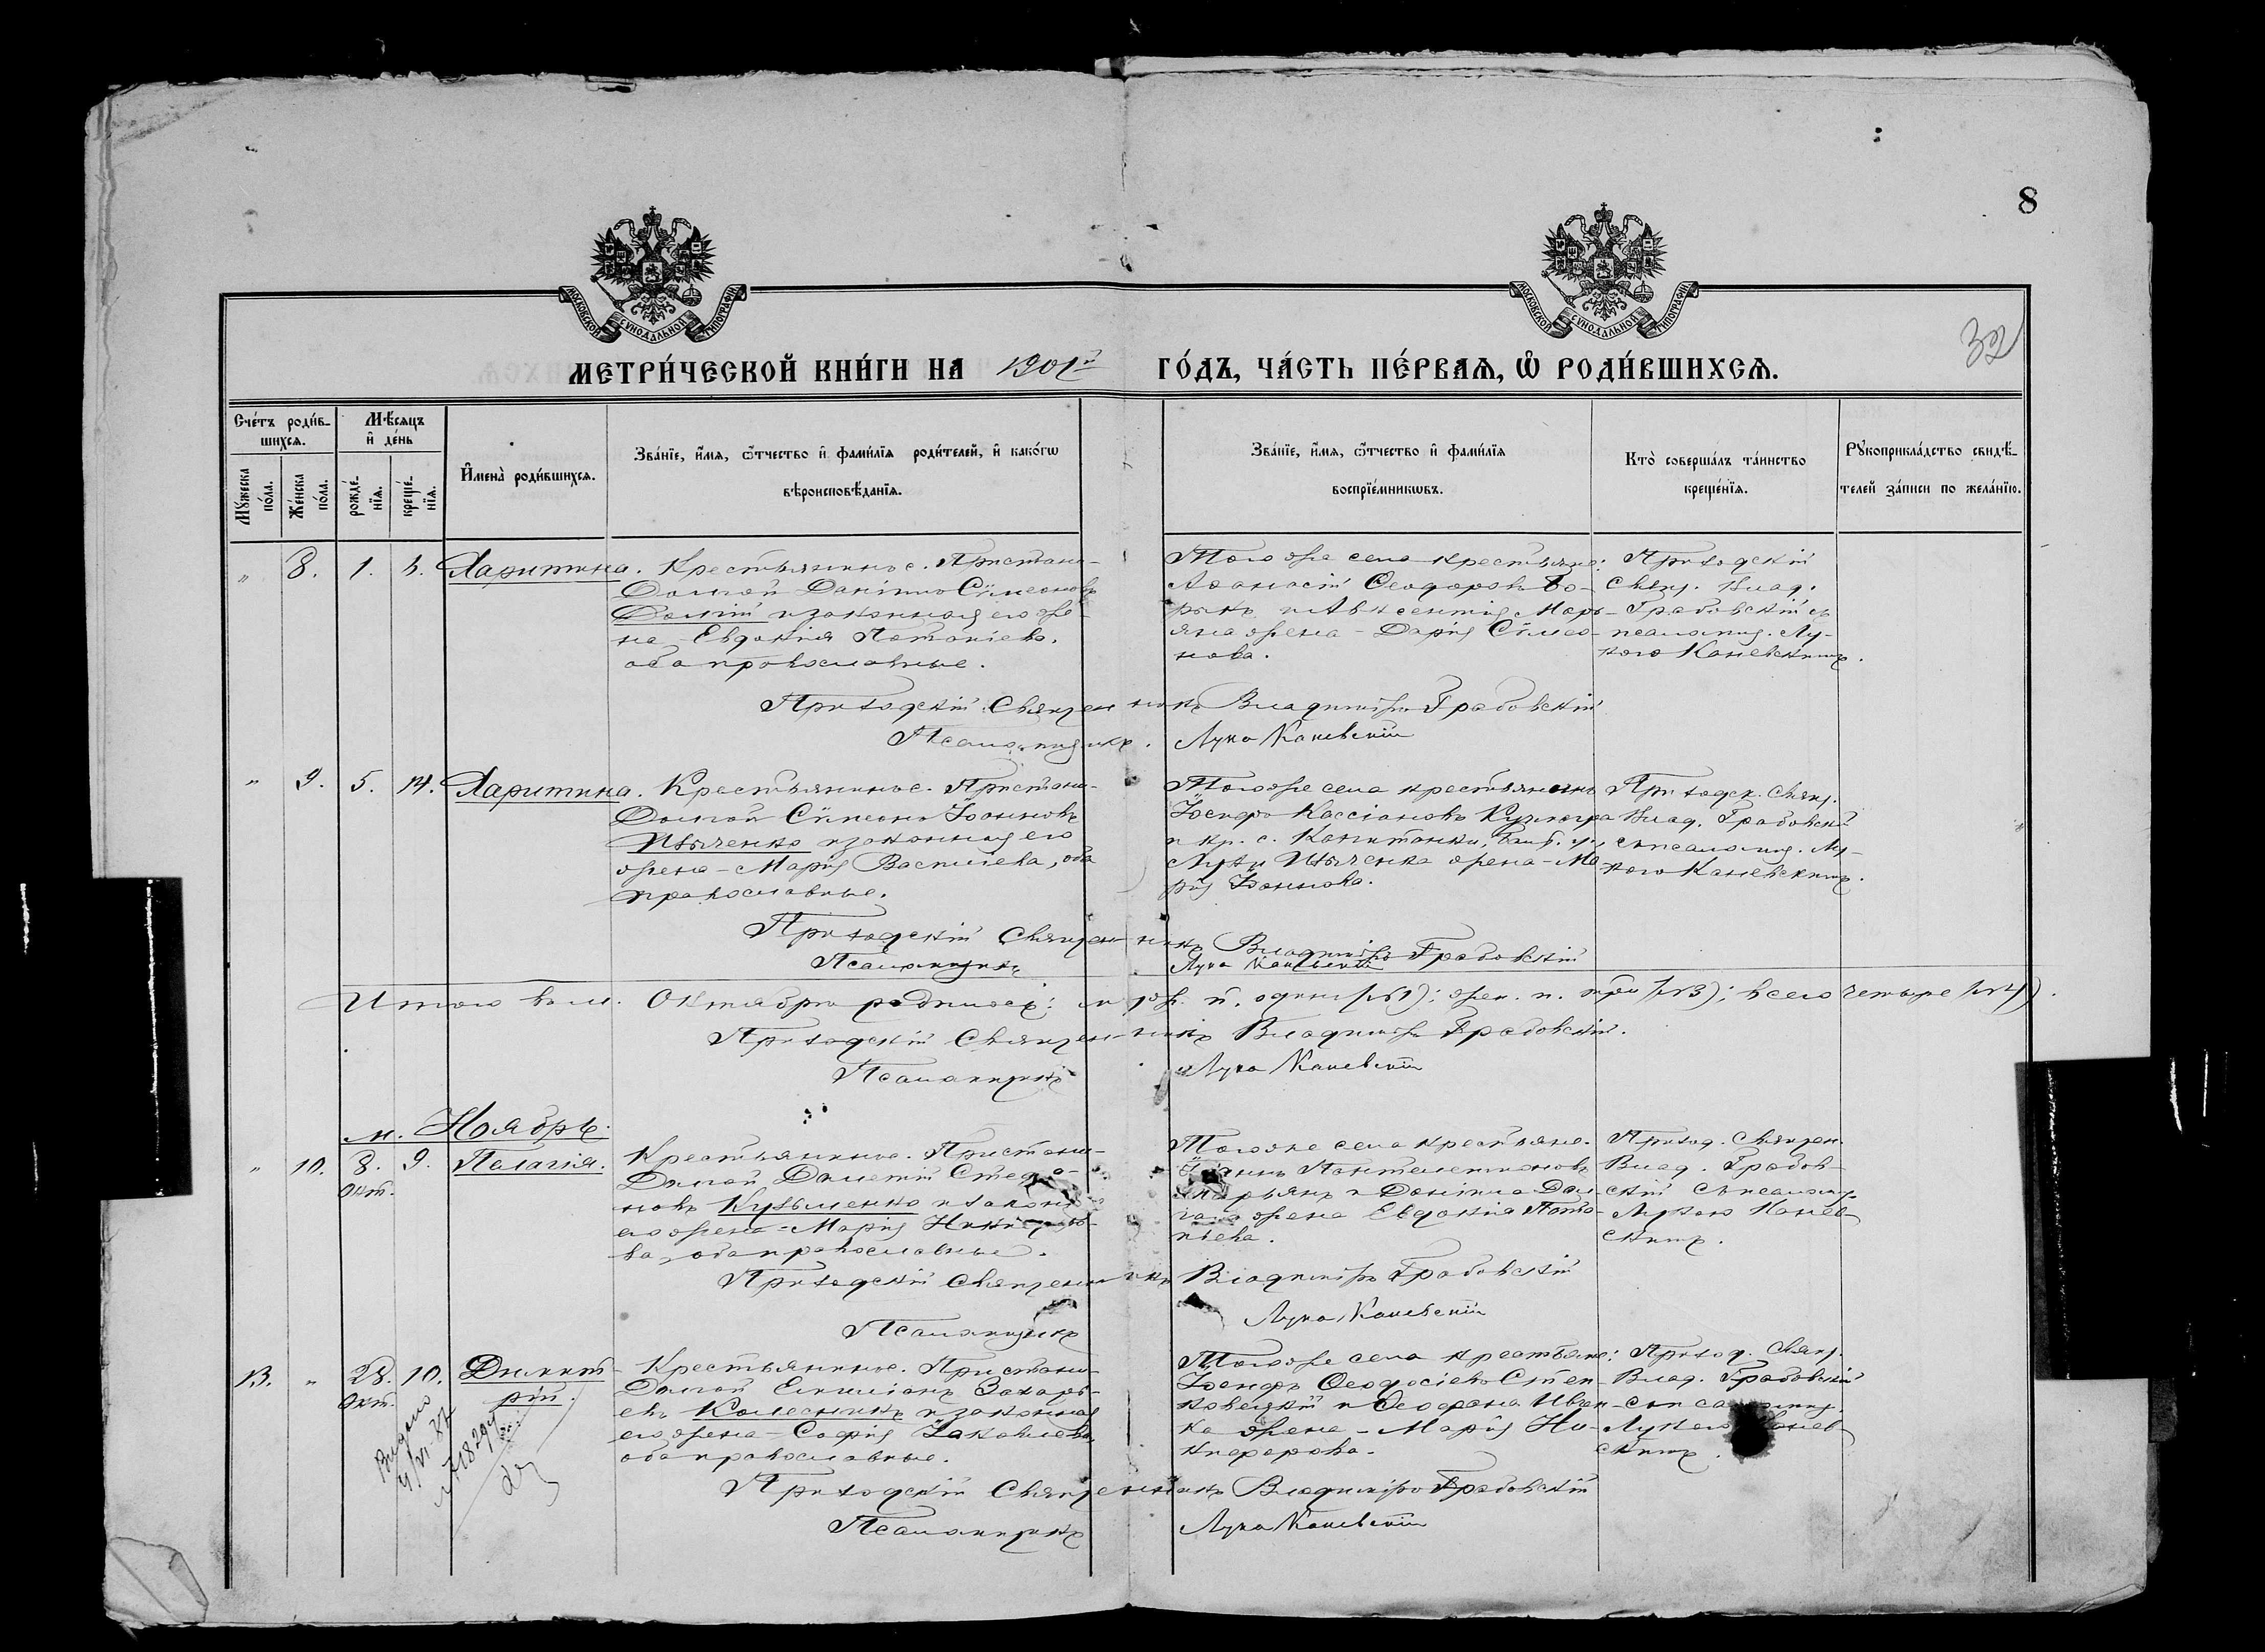 8
32
МОСКОВСКОЙ СѴНОДАЛЬНОЙ ТИПОГРАФІИ
МОСКОВСКОЙ СѴНОДАЛЬНОЙ ТИПОГРАФІИ
МЕТРИ́ЧЕСКОЙ КНИ́ГИ НА 1901й ГО́ДЪ, ЧА́СТЬ ПЕ́РВАѦ, Ѡ҆ РОДИ́ВШИХСѦ.
Сче́тъ роди́в-
шихсѧ.
Мꙋ́жеска по́ла.
Же́нска по́ла.
Мѣ́сѧцъ
и҆ де́нь
рожде́-нїѧ.
креще́-нїѧ.
И҆мена̀ роди́вшихсѧ.
Зва́нїе, и҆́мѧ, ѻ҆́тчество и҆ фами́лїѧ роди́телей, и҆ како́гѡ
вѣроисповѣ́данїѧ.
Зва́нїе, и҆́мѧ, ѻ҆́тчество и҆ фами́лїѧ
воспрїе́мникѡвъ.
Кто̀ соверша́лъ та́инство
креще́нїѧ.
Рꙋкоприкла́дство свидѣ́-
телей за́писи по жела́нїю.
" 8. 1. Харитина. Крестьянинъ с. Пристани-
Долгой Даніилъ Сѵмеоновъ
Долгій и законная его же-
на - Евдокія
оба православные.
Того же села крестьяне:
Аѳанасій Ѳеодоровъ Бо-
жена - Дарія Сѵмео-
нова.
Приходскій
Свящ. Влад.
Грабовскій съ
псаломщ. Лу-
кою Каневскимъ.
Приходскій Священникъ Владиміръ Грабовскій
Псаломщикъ. Лука Каневскій
" 9. 5. 14. Харитина. Крестьянинъ с. Пристани-
Долгой Сѵмеонъ Іоанновъ
и законная его
жена - Марія Васильева, оба
православные.
Того же села крестьянинъ
Іосифъ Кассіановъ
и кр. с. Капитанки,
жена - Ма-
рія Іоаннова.
Приходск. Свящ.
Влад. Грабовскій
съ псаломщ. Лу-
кою Каневскимъ.
Приходскій Священникъ Владиміръ Грабовскій
Псаломщикъ Лука Каневскій
Итого въ м. Октябрѣ родилось: муж. п. одинъ (№1); жен. п. три (№3); всего четыре (№4).
Приходскій Священникъ Владиміръ Грабовскій.
Псаломщикъ Лука Каневскій
м. Ноябрь.
" 10. 8. 9. Пелагія. Крестьянинъ с. Пристани-
Окт.
Долгой
новъ Кузьменко и законн.
его жена - Марія
ва, оба православные.
Того же села крестьяне:
Іоаннъ Пантелеимоновъ
и Даніила Дол-
гаго жена Евдокія
Приход. Священ.
Влад. Грабов-
скій съ псаломщ.
Лукою Канев-
скимъ.
Приходскій Священникъ Владиміръ Грабовскій
Псаломщикъ Лука Каневскій
13. " 28. 10. Димит-
Окт.
рій.
Видано
Крестьянинъ с. Пристани-
Долгой Емиліанъ Захарь-
евъ Колесникъ и законная
его жена - Софія Іаковлева,
оба православные.
Того же села крестьяне:
Іосифъ Ѳеодосіевъ Степ-
ковецкій и Ѳеофана Иван-
ка жена - Марія Ни-
кифорова.
Приход. Свящ.
Влад. Грабовскій
съ псаломщ.
Лукою Канев-
скимъ.
Приходскій Священникъ Владиміръ Грабовскій
Псаломщикъ Лука Каневскій